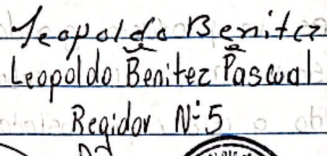 Leopoldo Benitez
Leopoldo Benitez Pascual
Regidor Nº 5